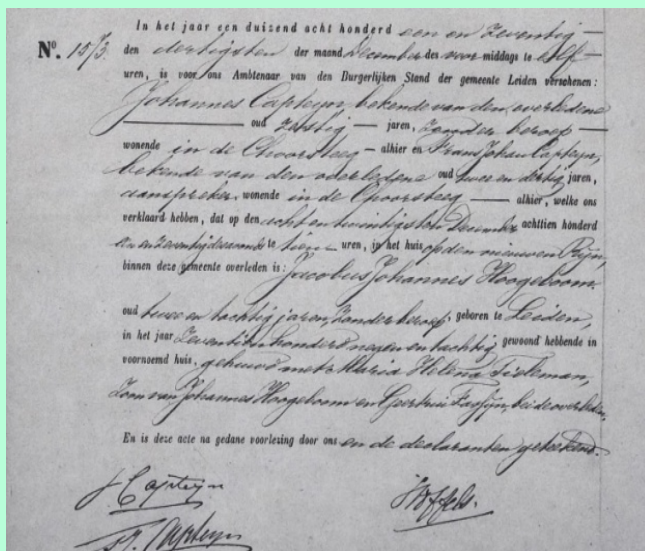 In het jaar een duizend acht honderd een en zeventig
N° 1573. den dertigsten der maand December des voor middags te elf
uren, is voor ons Ambtenaar van den Burgerlijken Stand der gemeente Leiden verschenen:
Johannes Capteyn, bekende van den overledene
oud zestig jaren, zonder beroep
wonende in de Choorsteeg alhier en Frans Johan Capteyn,
bekende van den overledene oud twee en dertig jaren,
aanspreker wonende in de Choorsteeg alhier, welke ons
verklaard hebben, dat op den acht en twintigsten December achttien honderd
een en zeventig des avonds te tien uren, in het huis op den nieuwen Rijn,
binnen deze gemeente overleden is: Jacobus Johannes Hoogeboom.
oud twee en tachtig jaren, zonder beroep, geboren te Leiden,
in het jaar zeventien honderd negen en tachtig gewoond hebbende in
voornoemd huis. gehuwd met Maria Helena Tieleman,
Zoon van Johannes Hoogeboom en Geertrui, beide overleden.
En is deze acte na gedane voorlezing door ons en de declaranten geteekend.
J Capteyn
Capteyn